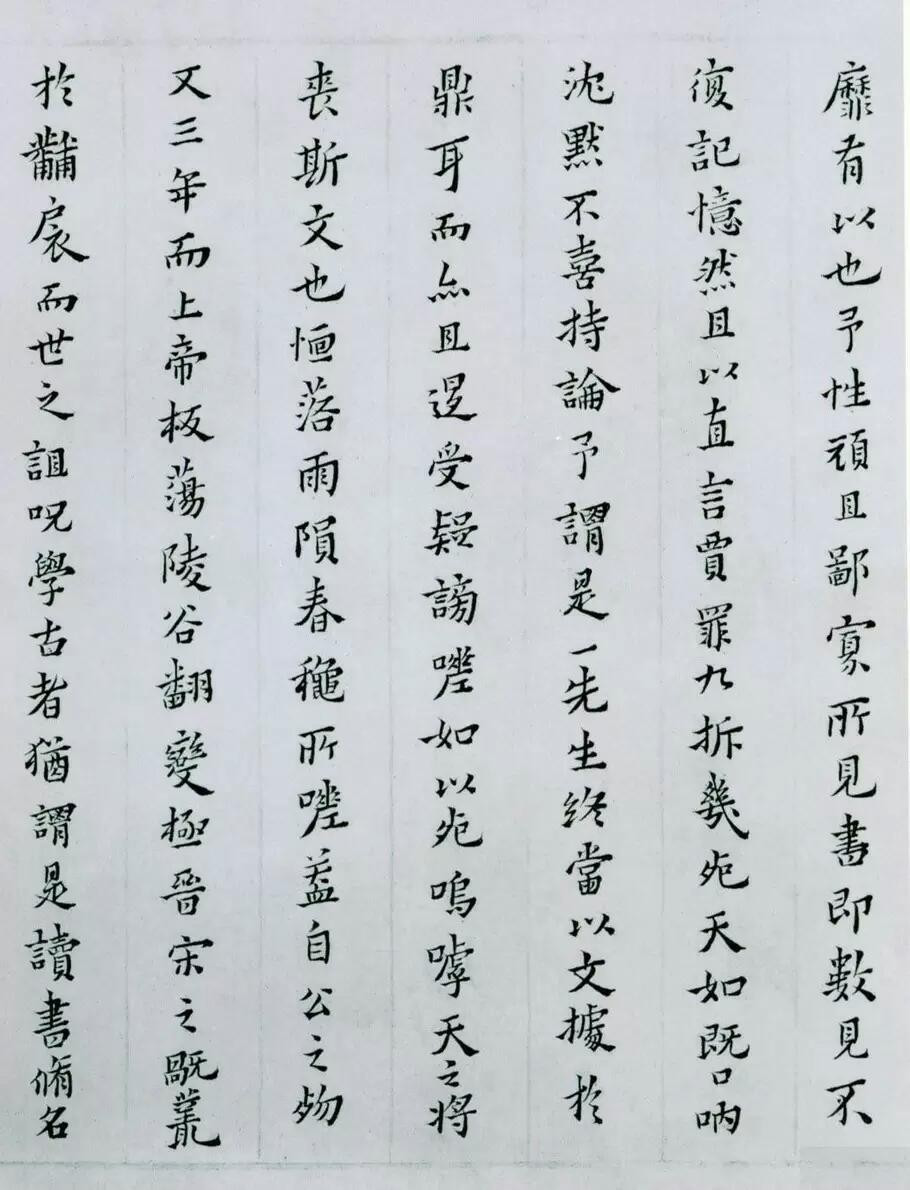 靡有以也予性頑且鄙寡所見書即數見不
復記憶然且以直言賈罪九拆幾死天如既口吶
沈默不喜持論予謂是一先生終當以文據於
鼎耳而亦且遝受疑謗嗟如以死嗚嘑天之將
喪斯文也恒落雨隕春穐所嗟葢自公之歾
又三年而上帝板蕩陵谷翻變極晉宋之叢
於黼扆而世之詛呪學古者猶謂是讀書脩名